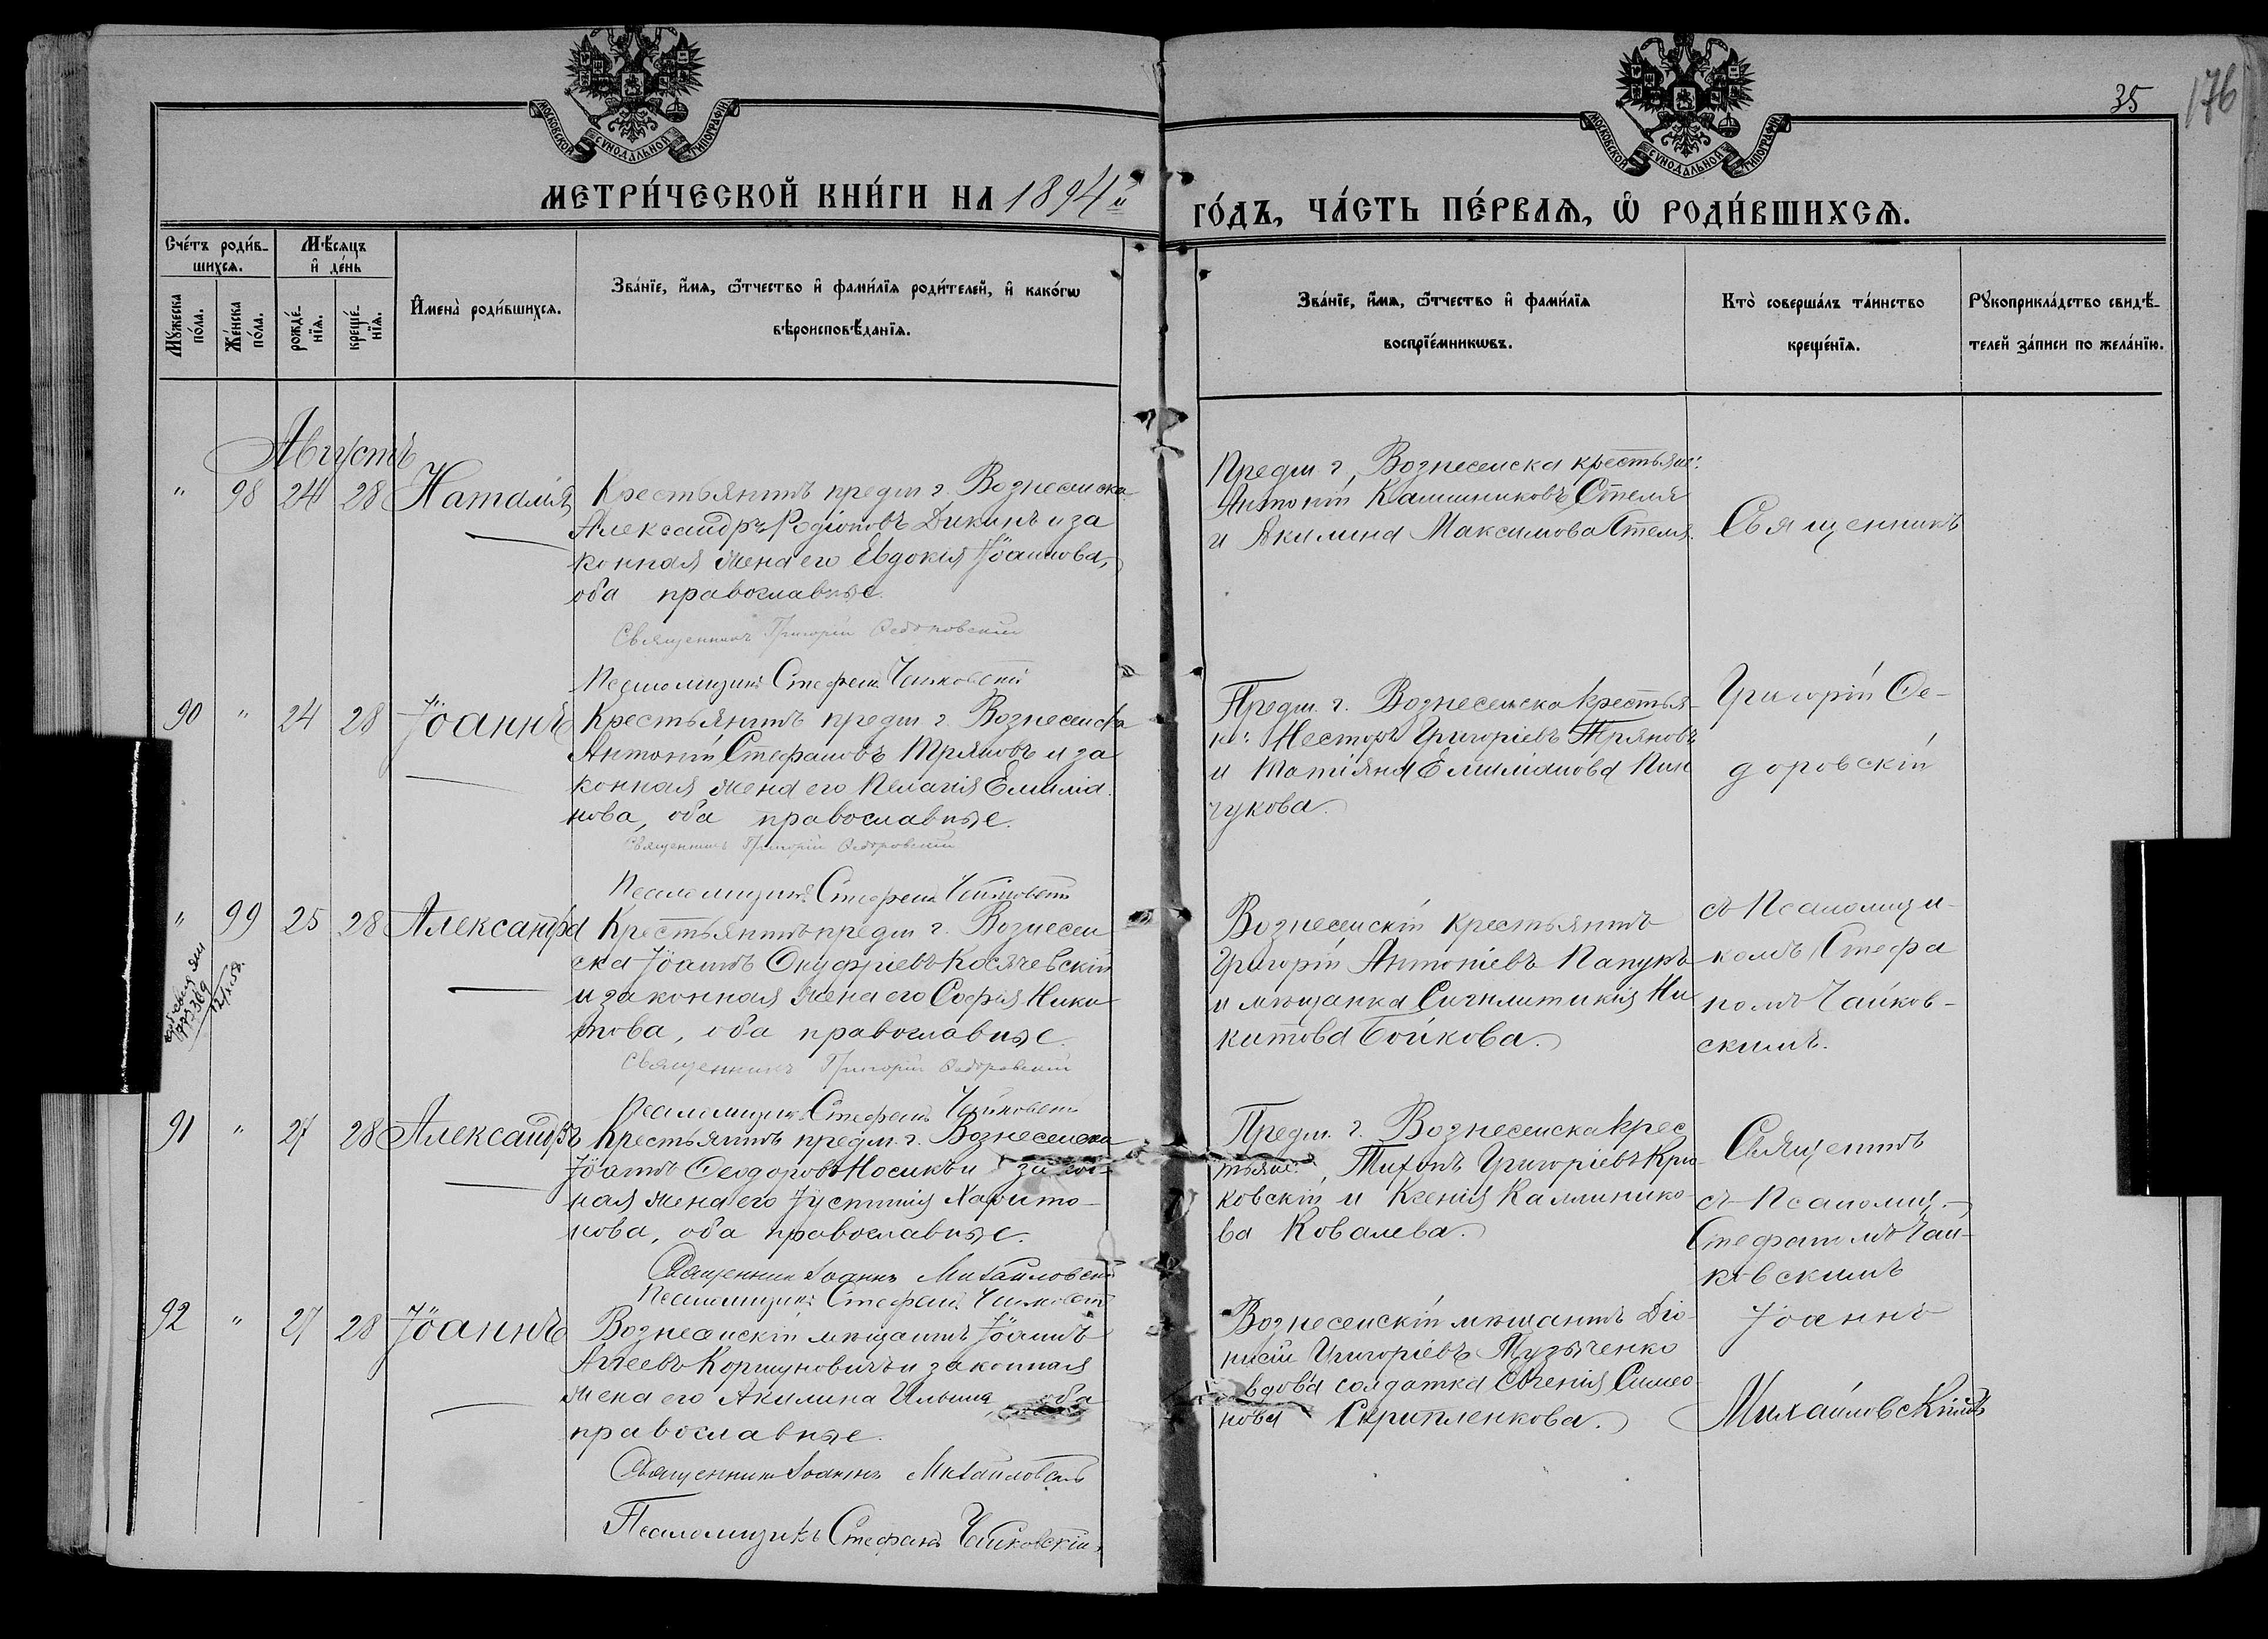 МОСКОВСКОЙ СУНОДАЛЬНОЙ ТИПОГРАФІИ
МОСКОВСКОЙ СУНОДАЛЬНОЙ ТИПОГРАФІИ
35
176
МЕТРИ́ЧЕСКОЙ КНИ́ГИ НА 1894й
ГО́ДЪ, ЧА́СТЬ ПЕ́РВАѦ, Ѡ҆ РОДИ́ВШИХСѦ.
Сче́тъ роди́в-
шихсѧ.
Мѣ́сѧцъ
и҆ де́нь
Мꙋ́жеска
по́ла.
Же́нска
по́ла.
рожде́-
нїѧ.
креще́-
нїѧ.
И҆мена̀ роди́вшихсѧ.
Зва́нїе, и҆́мѧ, ѻ҆́тчество и҆ фами́лїѧ роди́телей, и҆ како́гѡ
вѣроисповѣ́данїѧ.
Зва́нїе, и҆́мѧ, ѻ҆́тчество и҆ фами́лїѧ
воспрїе́мникѡвъ.
Кто̀ соверша́лъ та́инство
креще́нїѧ.
Рꙋкоприкла́дство свидѣ́-
телей за́писи по жела́нїю.
Августъ
" 98 24 28 Наталія
Крестьянинъ предм г. Вознесенска
Александръ Родіоновъ Дикинъ и за
конная жена его Евдокія Іоаннова,
оба православные.
Священникъ Григорій Ѳедоровскій
Псаломщикъ Стефанъ Чайковскій
Предм. г. Вознесенска крестьяне:
Антоній Калинниковъ Стеля
и Акилина Максимова Стеля.
Священникъ
90 " 24 28 Іоаннъ
Крестьянинъ предм г. Вознесенска
Антоній Стефановъ Тряновъ и за
конная жена его Пелагія Емиліа
нова, оба православные.
Священникъ Григорій Ѳедоровскій
Псаломщикъ Стефанъ Чайковскій
Предм. г. Вознесенска крестья-
не: Несторъ Григоріевъ Тряновъ
и Татіяна Емиліанова Пин
чукова.
Григорій Ѳе-
доровскій
" 99 25 28 Александра
Крестьянинъ предм г. Вознесен
ска Іоаннъ Онуфріевъ Косячевскій
и законная жена его Софія Ники
това, оба православные.
Священникъ Григорій Ѳедоровскій
Псаломщикъ Стефанъ Чайковскій
Вознесенскій крестьянинъ
Григорій Антоніевъ Папукъ
и мѣщанка Сигклитикія Ни
китова Бойкова.
съ Псаломщи-
комъ Стефа
номъ Чайков-
скимъ.
91 " 27 28 Александръ
Крестьянинъ предм. г. Вознесенска
Іоаннъ Ѳеодоровъ Носикъ и закон-
ная жена его Іустинія Харито-
нова, оба православные.
Священникъ Іоаннъ Михайловскій
Псаломщикъ Стефанъ Чайковскій
Предм. г. Вознесенска крес
тьяне: Тихонъ Григоріевъ Кри-
ковскій и Ксенія Каллинико-
ва Ковалева.
Священникъ
съ Псаломщ.
Стефаномъ Чай-
ковскимъ
92 " 27 28 Іоаннъ
Вознесенскій мѣщанинъ Іоаннъ
Аггеевъ Коршуновичъ и законная
жена его Акилина Ильина, оба
православные.
Священникъ Іоаннъ Михайловскій
Псаломщикъ Стефанъ Чайковскій.
Вознесенскій мѣщанинъ Діо-
нисій Григоріевъ Пузыченко
вдова солдатка Евгенія Симео
нова Скрипленкова.
Іоаннъ
Михайловскій